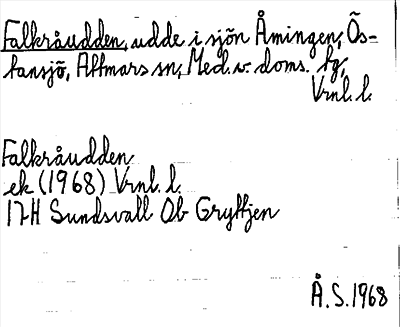 Falkråudden, udde i sjön Åmingen, Ös-
tansjö, Attmars sn, Med. v. doms. tg,
Vrnl. l.
Falkråudden
ek (1968) Vrnl. l.
17H Sundsvall Ob Gryttjen
Å. S. 1968